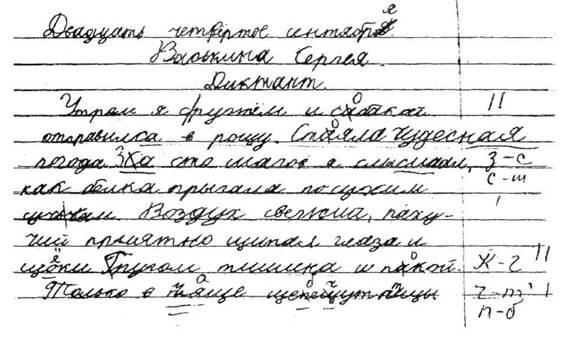 Двадцать четвёртое сентября
Васькина Сергея.
Диктант.
Утром я с ружём и собакой 11
отправился в рощу. Стаяла чудесная
погода. За сто шагов я слысшал, з-с
с-ш
как белка прыгала по сухим
сучьям. Воздух свежий, паху-
чий приятно щипал глаза и
щёки. Кругом тишина и покой. К-г 11
Только в чаще щебечут птицы ч-т' 1
п-б